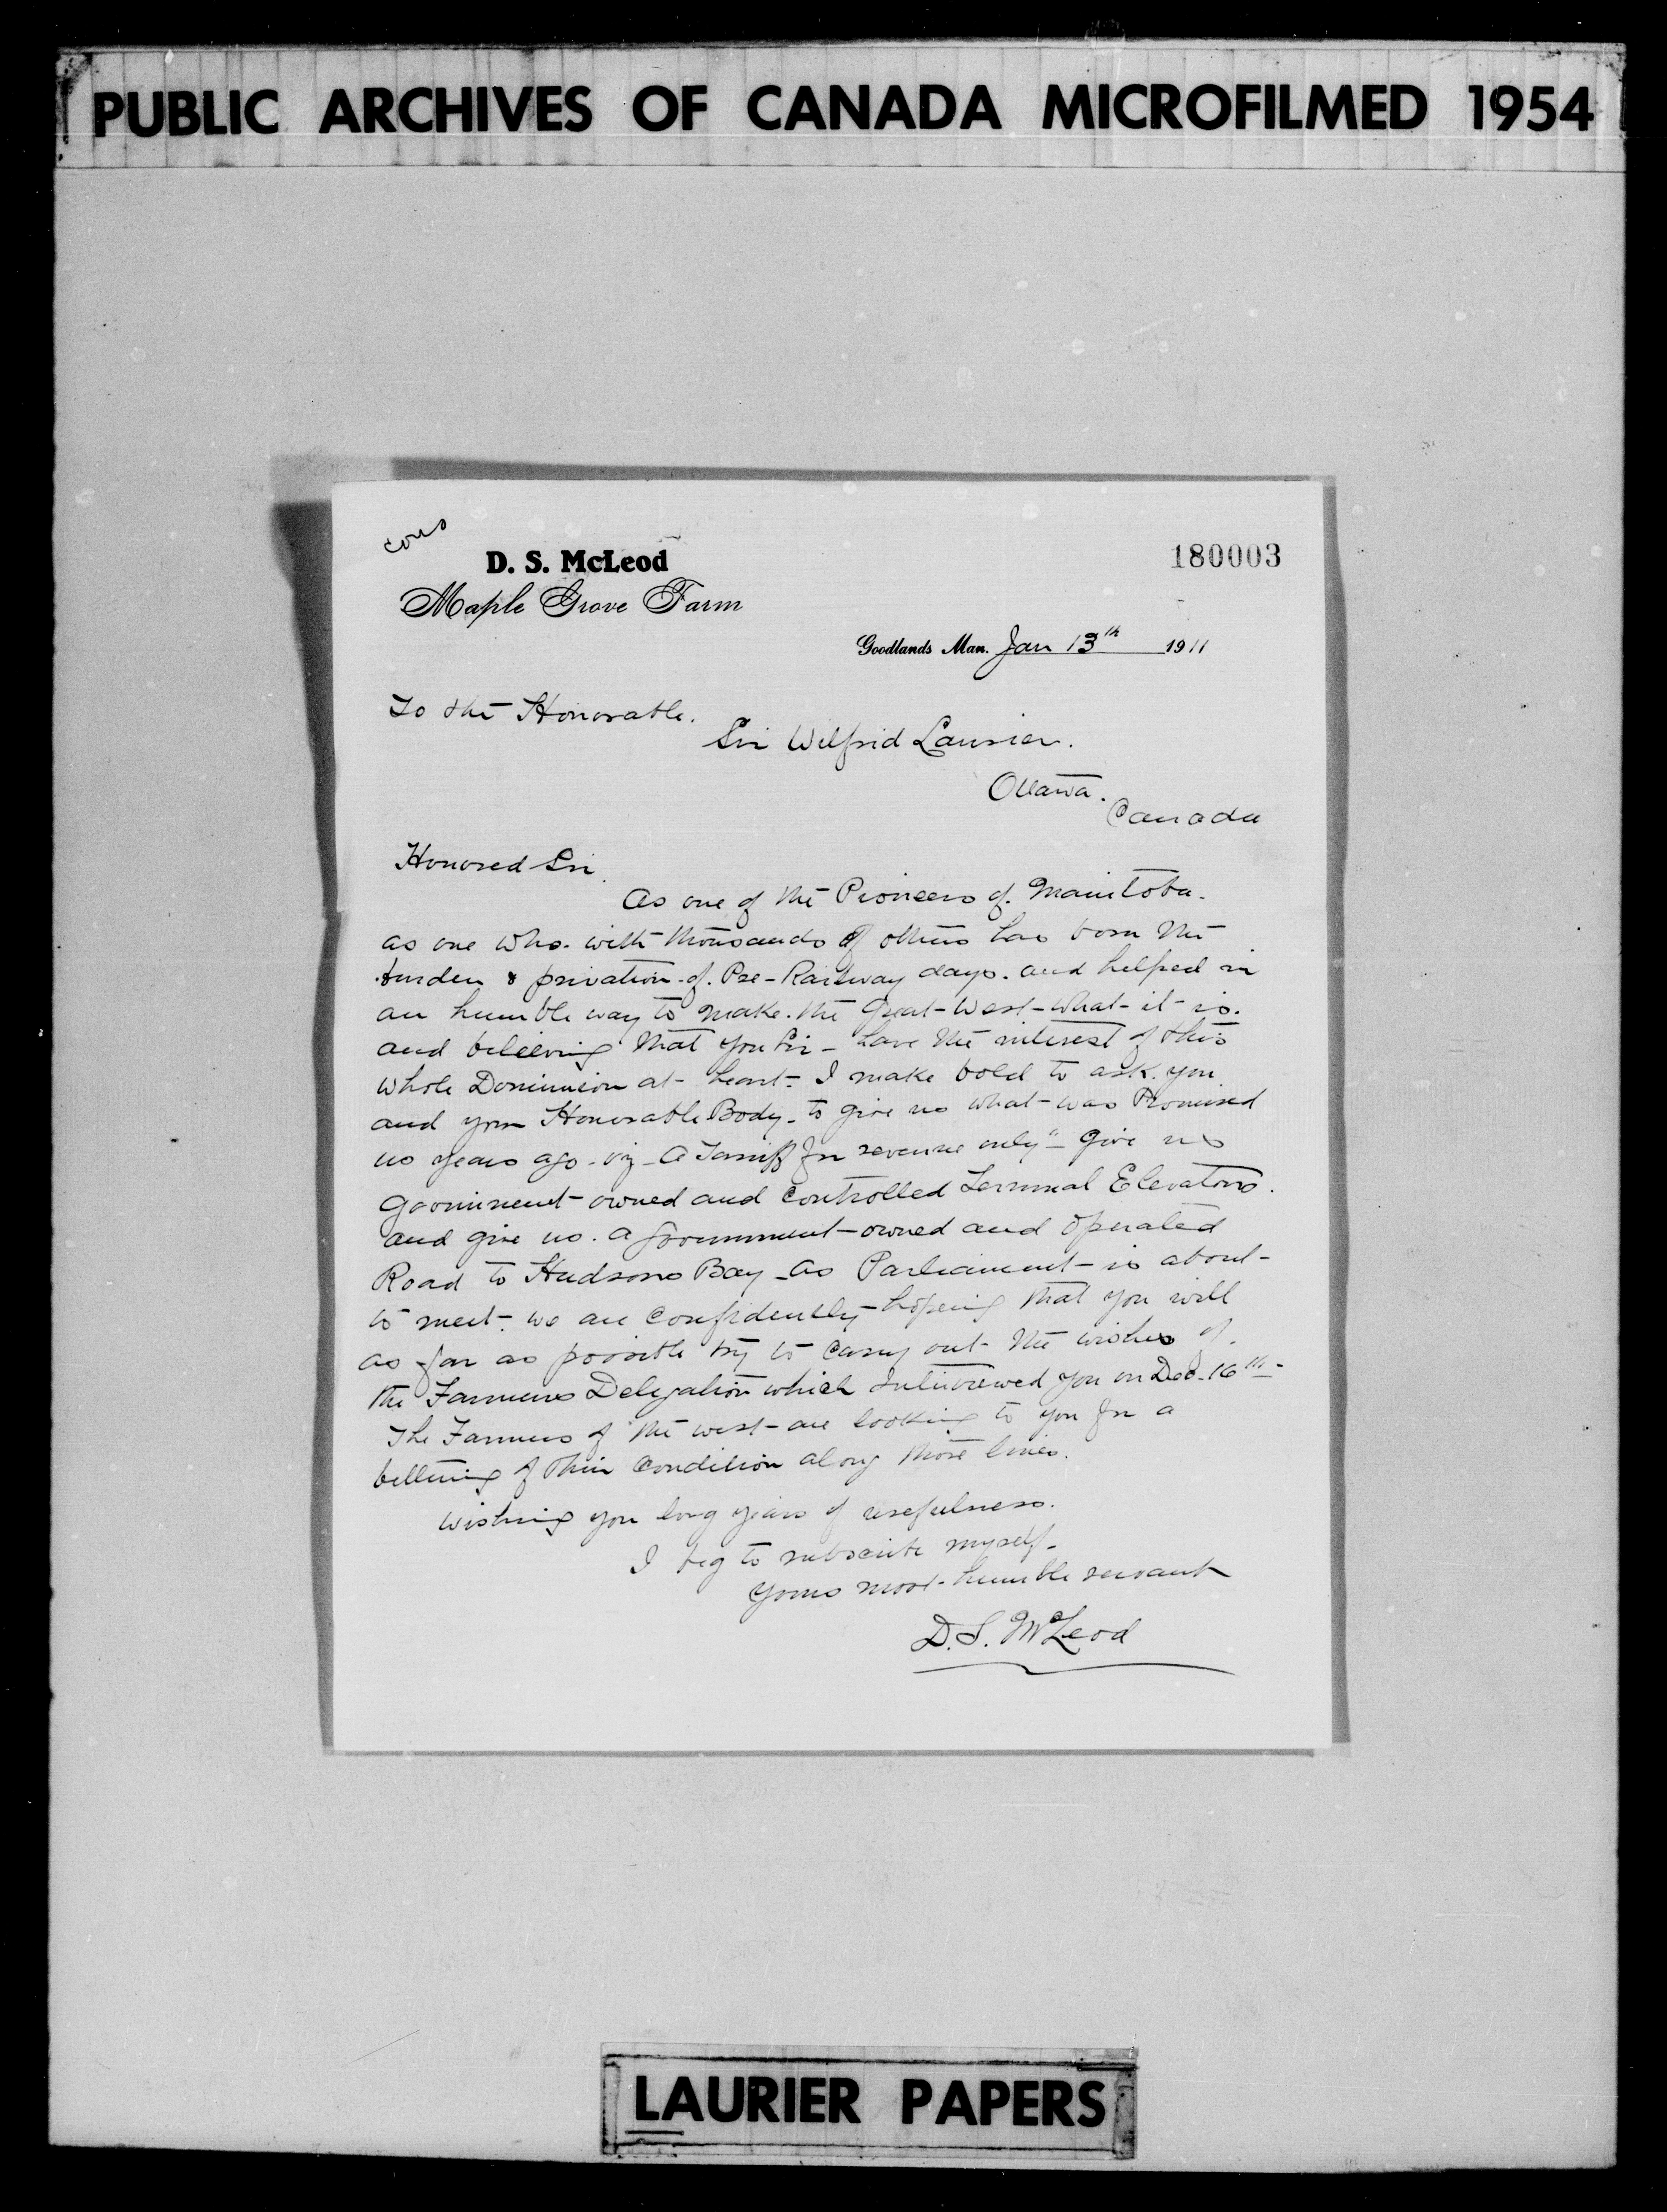 PUBLIC ARCHIVES OF CANADA MICROFILMED 1954
cons
D. S. McLeod
180003
Maple Grove Farm
Goodlands Man. Jan 13th 1911
To the Honorable.
Sir Wilfrid Laurier.
Ottawa.
Canada
Honored Sir.
As one of the Pioneers of. Manitoba.
as one who. with thousands of others has born the
burden & privation of. Pre-Railway days. and helped in
an humble way to make. the great-West-what-it-is.
and beleiving that you Sir - have the interest of this
whole Dominion at- heart- I make bold to ask. you
and your Honorable Body. to give us what-was Promised
us years ago - viz - A Tarriff for revenue only" - Give us
Goverment-owned and Controlled Terminal Elevators.
and give us. a Government-owned and operated
Road to Hudsons Bay - As Parliament- is about-
to meet- we are Confidently-hopeing that you will
as far as possible try to Carry out- the wishes of.
the Farmers Delegation which Interviewed you on Dec. 16th-
The Farmers of the west-are looking to you for a
bettering of their Condition along those lines.
Wishing you long years of usefulness.
I beg to subscribe myself-
yours most-humble servant
D. S. McLeod
LAURIER PAPERS